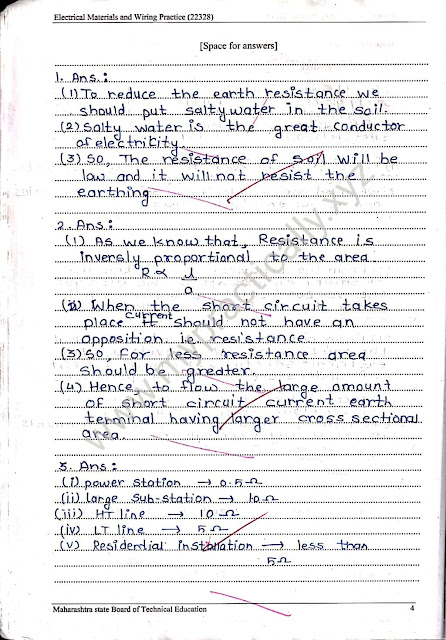 Electrical Materials and Wiring Practice (22328)
[Space for answers]
1. Ans.:
(1) To reduce the earth resistance we
should put salty water in the soil.
(2) Salty water is the great conductor
of electricity.
(3) So, The resistance of soil will be
law and it will not resist the
earthing
2. Ans:
(1) As we know that, Resistance is
inversly proportional to the area
R ∝ l
a
(2) When the short circuit takes
place current It should not have an
opposition i.e. resistance
(3) So, For less resistance area
should be greater.
(4) Hence to flow the large amount
of short circuit current earth
terminal having larger cross sectional
area.
3. Ans:
(i) power station → 0.5Ω
(ii) large Sub-station → 1.0Ω
(iii) HT line → 10Ω
(iv) LT line → 5Ω
(v) Residential installation → less than
5Ω
Maharashtra state Board of Technical Education 4
www.mypractically.xyz